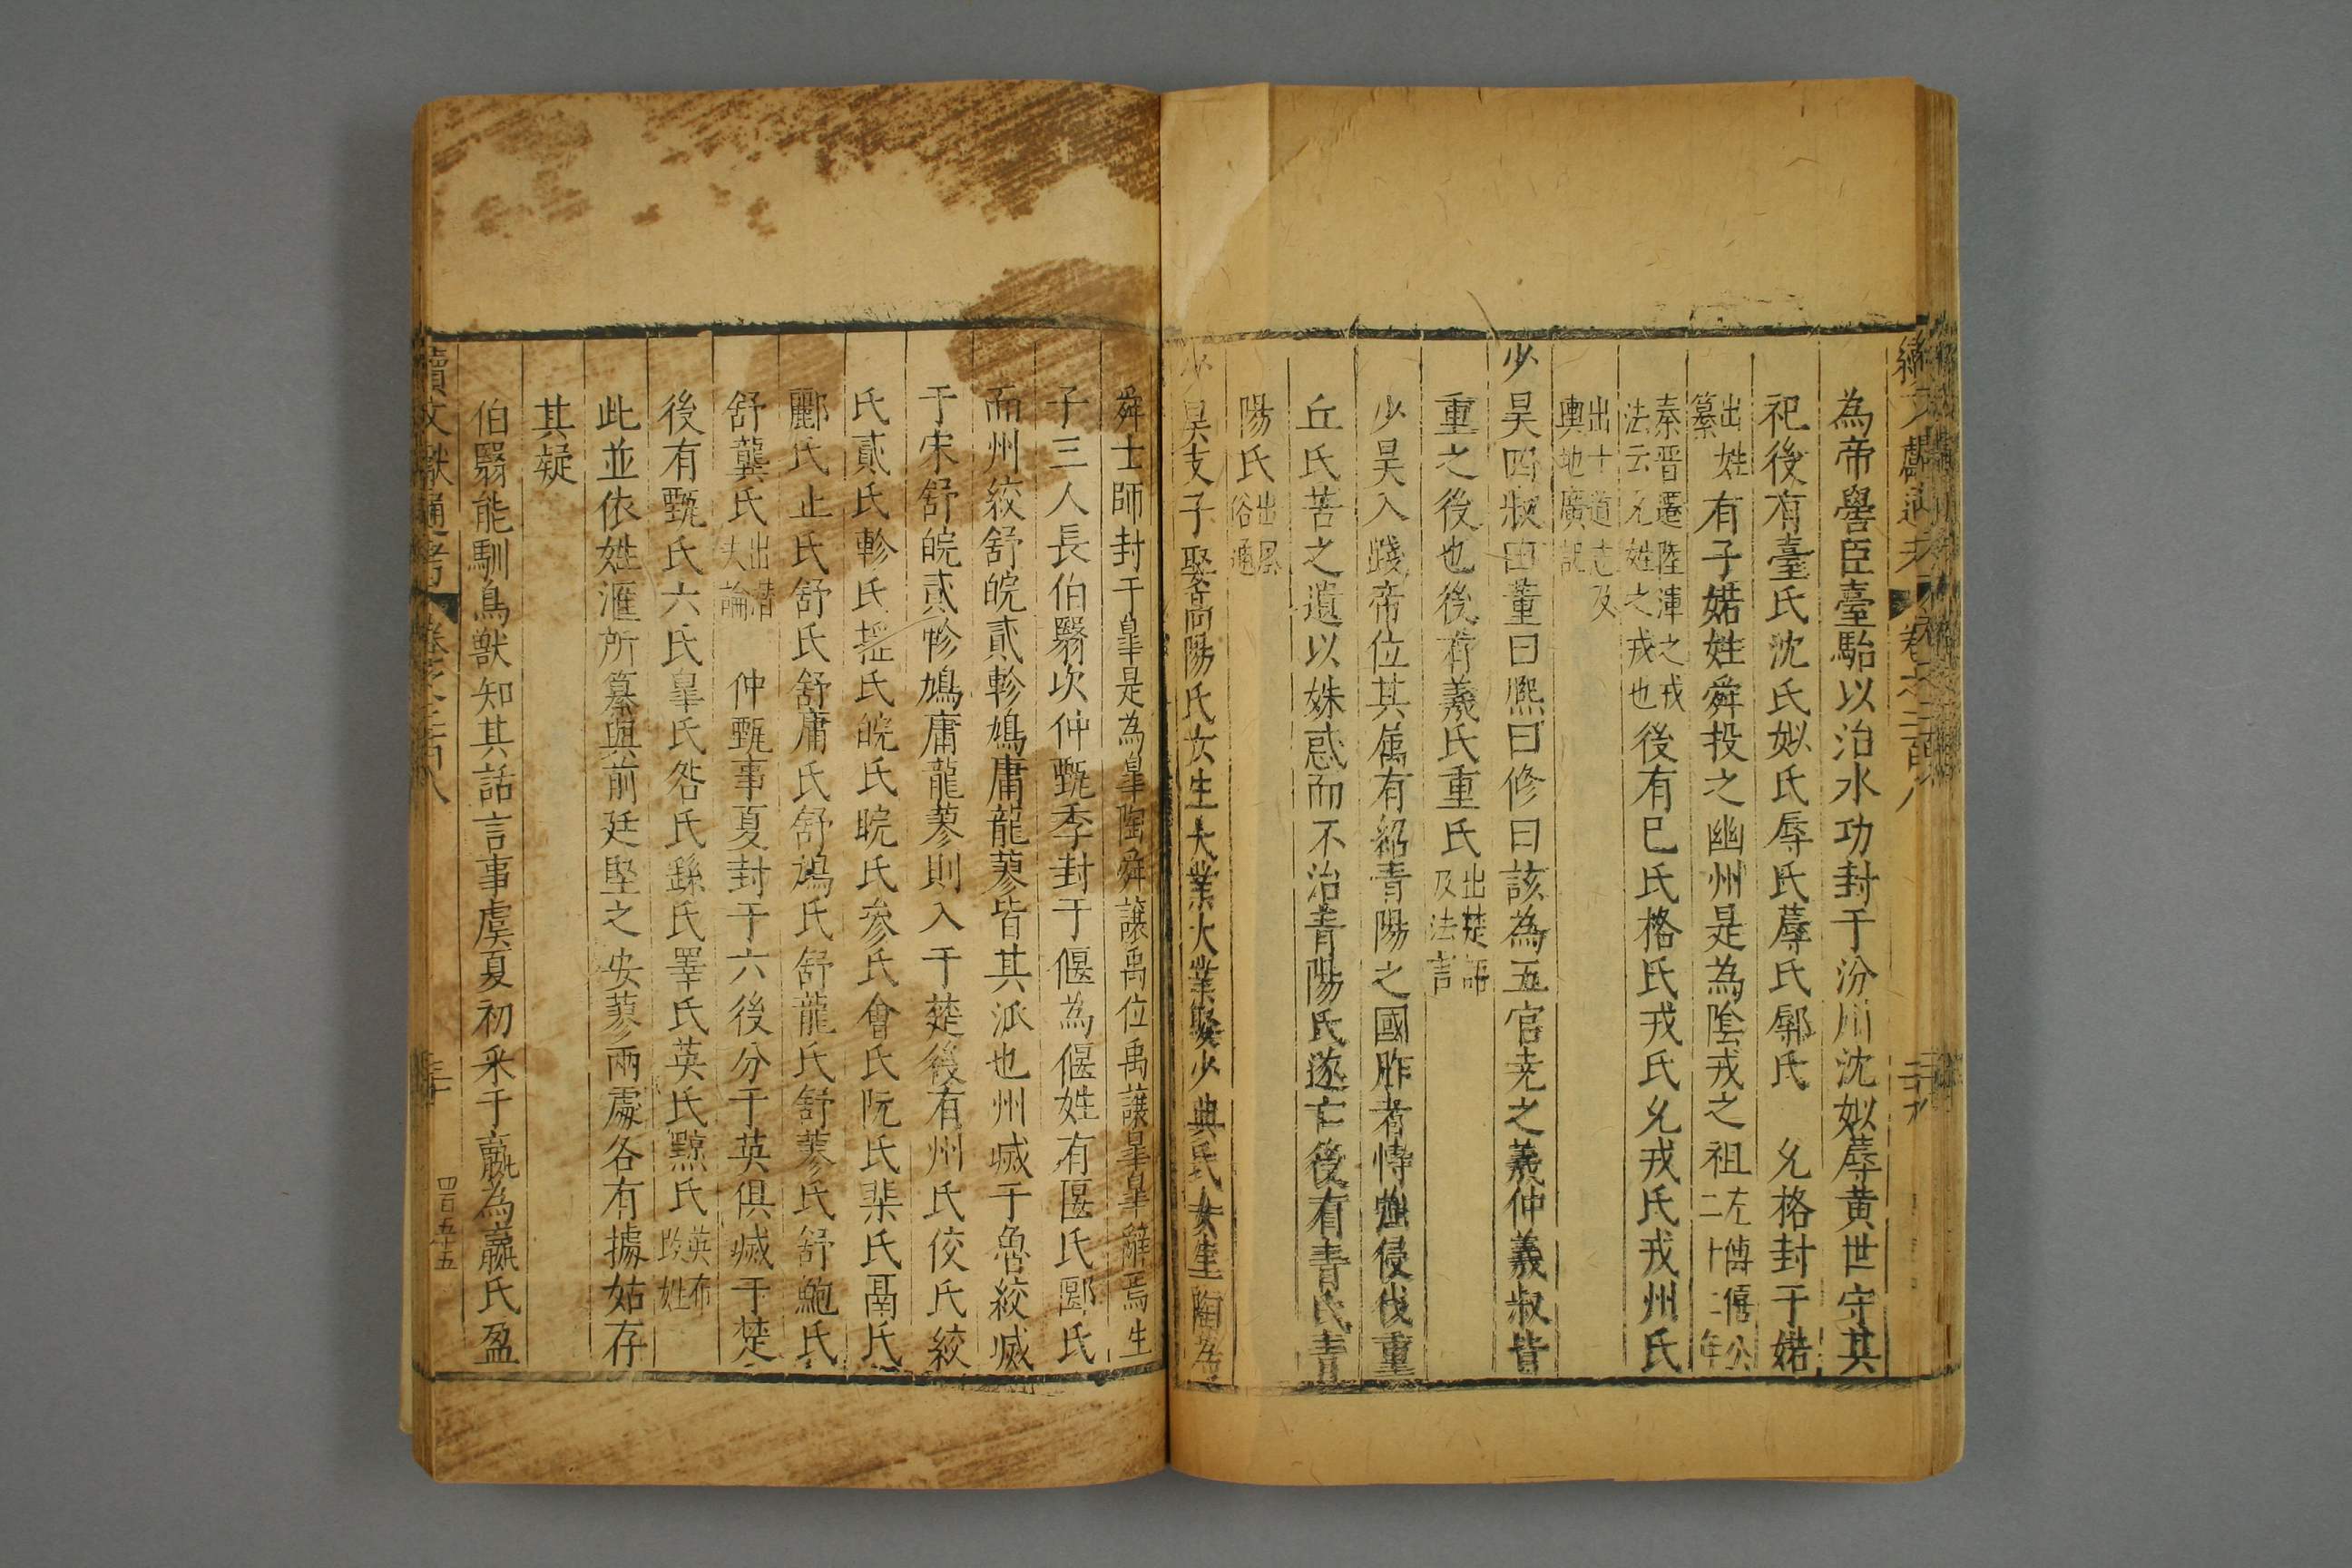 為帝嚳臣臺駘以治水功封于汾川沈姒蓐黄世守其
祀後有臺氏沈氏姒氏辱氏蓐氏鄏氏 允格封于婼
出姓纂有子婼姓舜投之幽州是為陰戎之祖左傳僖公二十二年
秦晋遷陸渾之戎法云允姓之戎也後有巳氏格氏戎氏允戎氏戎州氏
出十道志及輿地廣記
少昊四叔曰董曰熈曰修曰該為五官尭之羲仲羲叔皆
重之後也後有羲氏重氏出楚語及法言
少昊入踐帝位其属有紹青陽之國胙者恃強侵伐重
丘氏苦之遺以姝惑而不治青陽氏遂亡後有青氏青
陽氏出風俗通
少昊支子娶高陽氏女生大業大業娶少典氏女生陶為
舜士師封于皐是為皐陶舜讓禹位禹讓皐皐辭焉生
子三人長伯翳次仲甄季封于偃為偃姓有偃氏郾氏
而州絞舒皖貳軫鳩庸龍蓼皆其派也州㓕于魯絞㓕
于宋舒皖貳軫鳩庸龍蓼則入于楚後有州氏佼氏絞
氏貳氏軫氏摇氏皖氏睆氏参氏會氏阮氏棐氏鬲氏
酈氏止氏舒氏舒庸氏舒鳩氏舒龍氏舒蓼氏舒鮑氏
舒龔氏出潛夫論 仲甄事夏封于六後分于英俱㓕于楚
後有甄氏六氏皐氏咎氏繇氏睪氏英氏黥氏英布改姓
此並依姓滙所纂與前廷堅之安蓼兩處各有據姑存
其疑
伯翳能馴鳥獸知其話言事虞夏初采于嬴為嬴氏盈
續文獻通考 卷之二百八 三十
四百五十五